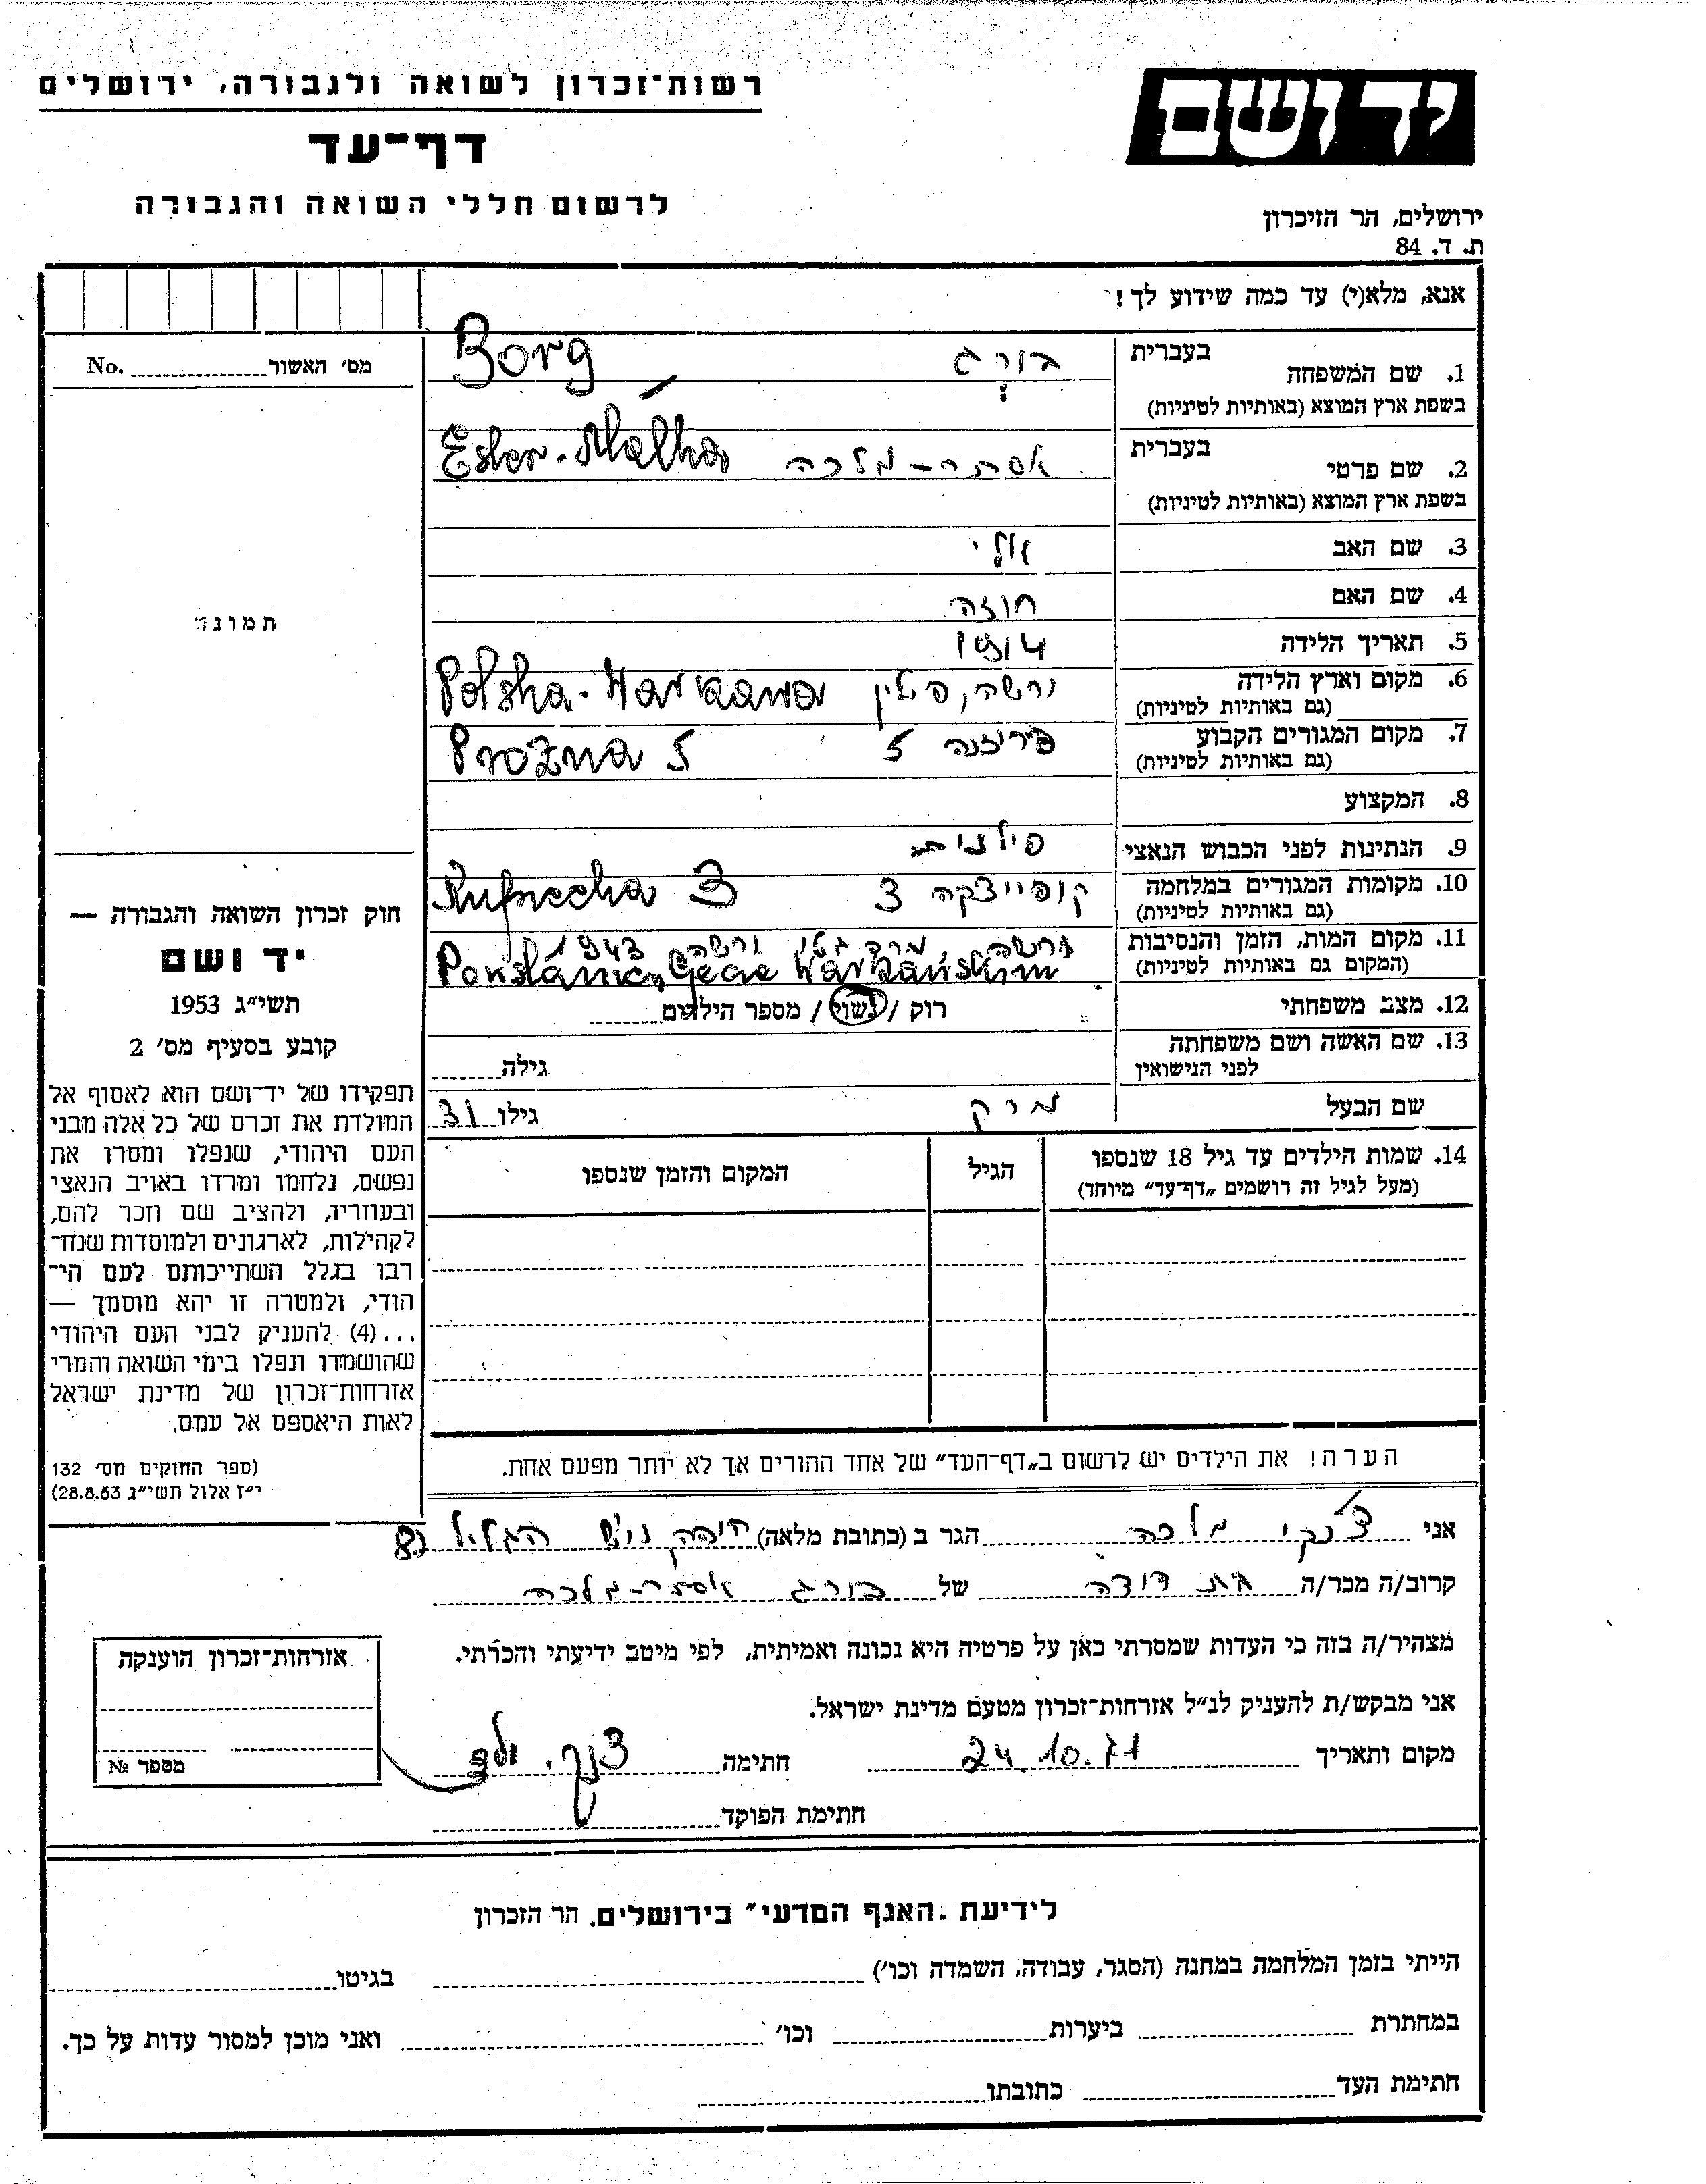 רשות־זכרון לשואה ולגבורה, ירושלים
דף־עד
לרשום חללי השואה והגבורה
יד ושם
ירושלים, הר הזיכרון
ת. ד. 84
אנא, מלא(י) עד כמה שידוע לך!
1. שם המשפחה בעברית בורג Borg
בשפת ארץ המוצא (באותיות לטיניות)
2. שם פרטי בעברית אסתר-מלכה Ester-Malka
בשפת ארץ המוצא (באותיות לטיניות)
3. שם האב אלי
4. שם האם חוזה
5. תאריך הלידה 1914
6. מקום וארץ הלידה ורשה, פולין Polska-Warszawa
(גם באותיות לטיניות)
7. מקום המגורים הקבוע פרוזנה 5 Prozna 5
(גם באותיות לטיניות)
8. המקצוע
9. הנתינות לפני הכבוש הנאצי פולנית
10. מקומות המגורים במלחמה קופייצקה 3 Kupiecka 3
(גם באותיות לטיניות)
11. מקום המות, הזמן והנסיבות ורשה, מרד גטו ורשה 1943
(המקום גם באותיות לטיניות)
12. מצב משפחתי רוק / נשוי / מספר הילדים
13. שם האשה ושם משפחתה
לפני הנישואין גילה
שם הבעל מרק גילו 31
14. שמות הילדים עד גיל 18 שנספו הגיל המקום והזמן שנספו
(מעל לגיל זה רושמים „דף־עד״ מיוחד)
הערה! את הילדים יש לרשום ב„דף־העד״ של אחד ההורים אך לא יותר מפעם אחת.
מס׳ האשור No.
תמונה
חוק זכרון השואה והגבורה —
יד ושם
תשי״ג 1953
קובע בסעיף מס׳ 2
תפקידו של יד־ושם הוא לאסוף אל
המולדת את זכרם של כל אלה מבני
העם היהודי, שנפלו ומסרו את
נפשם, נלחמו ומרדו באויב הנאצי
ובעוזריו, ולהציב שם וזכר להם,
לקהילות, לארגונים ולמוסדות שנח־
רבו בגלל השתייכותם לעם הי־
הודי, ולמטרה זו יהא מוסמך —
...(4) להעניק לבני העם היהודי
שהושמדו ונפלו בימי השואה והמרי
אזרחות־זכרון של מדינת ישראל
לאות היאספם אל עמם.
(ספר החוקים מס׳ 132
י״ז אלול תשי״ג 28.8.53)
אני מלכה הגר ב (כתובת מלאה) חיפה נוש הגליל
קרוב/ה מכר/ה בת דודה של בורג אסתר-מלכה
מצהיר/ה בזה כי העדות שמסרתי כאן על פרטיה היא נכונה ואמיתית, לפי מיטב ידיעתי והכרתי.
אני מבקש/ת להעניק לנ״ל אזרחות־זכרון מטעם מדינת ישראל.
מקום ותאריך 24.10.71 חתימה
חתימת הפוקד
אזרחות־זכרון הוענקה
מספר №
לידיעת „האגף המדעי״ בירושלים. הר הזכרון
הייתי בזמן המלחמה במחנה (הסגר, עבודה, השמדה וכו׳) בגיטו
במחתרת ביערות וכו׳ ואני מוכן למסור עדות על כך.
חתימת העד כתובתו